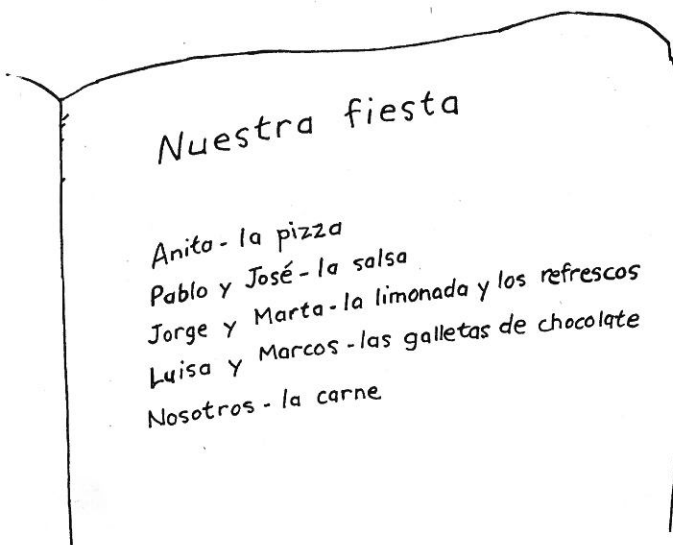 Nuestra fiesta
Anita - la pizza
Pablo y José - la salsa
Jorge y Marta - la limonada y los refrescos
Luisa y Marcos - las galletas de chocolate
Nosotros - la carne